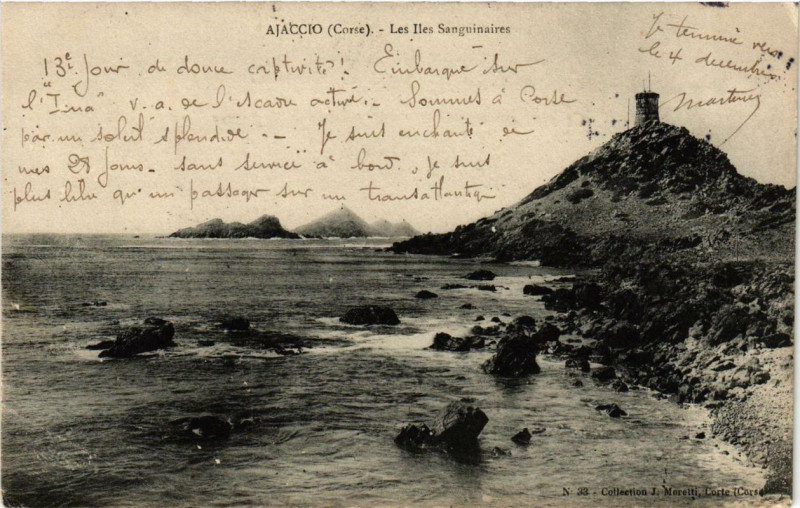 AJACCIO (Corse). - Les Iles Sanguinaires
Je termine
le 4 décembre
Martinez
13e Jour de douce captivité! Embarqué sur
l'"Iéna" v. a. de l'escadre active. Sommes à Corse
par un soleil splendide - Je suis enchanté de
mes 28 Jours - sans service à bord, je suis
plus libre qu'un passager sur un transatlantique
N° 33 - Collection J. Moretti, Corte (Corse)